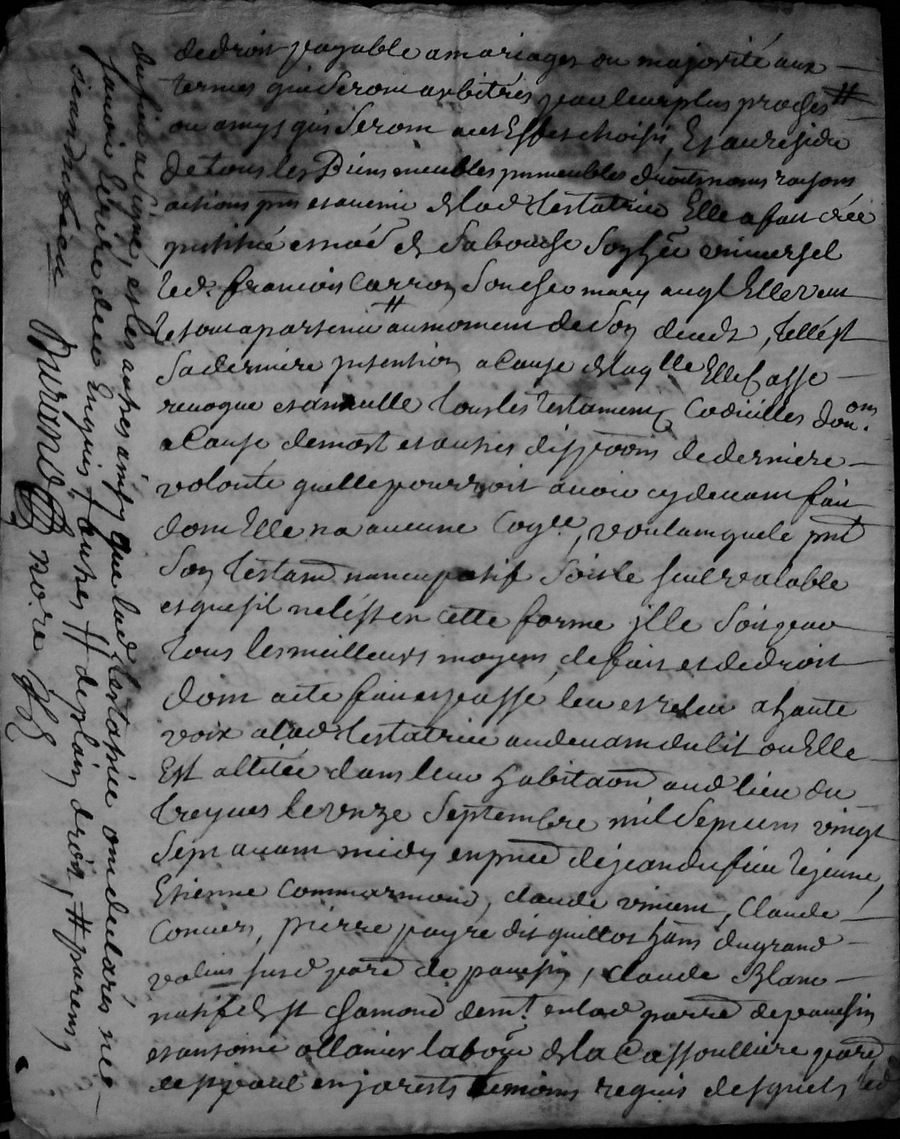 de droit payable a mariages ou majorité aux
termes qui seront arbitrés par leur plus proches #
ou amys qui seront a cet effet choisis, Et au residu
de tous les Biens meubles immeubles droits noms raisons
actions pnts et avenir de lad. testatrice Elle a fait créé
institué et nomé de sa bouche son her. universel
led. francois Carron son cher mary auql Elle veut
le tout apartenir # au moment de son deceds, telle est
sa derniere intention a Cause de laqlle Elle Casse
revoque et annulle tous les testaments Codicilles donons
a Cause de mort et autres dispoons de derniere
volonté quelle pourroit avoir cy devant fait
dont Elle na aucune , voulant que le pnt
son testamt nuncupatif soit le seul valable
et que sil ne lest en cette forme il le soit par
tous les meilleurs moyens de fait et de droit
dont acte fait et passé, leu et releu a haute
voix a lad. testatrice au devant du lit ou Elle
Est allitée dans leur habitaon aud. lieu du
treyves le onze septembre mil sept cents vingt
sept avant midy en pnce de jean dufieu le jeune,
Etienne Commarmond, claude vincent, Claude
Couvier, pierre payre dit guillot hants du grand
valuis susd. parre de pavesin, Claude Blanc
natif de st chamond demt en lad. parre de pavesin
et antoine allanier labour de la Cassoulliere parre
de st paul en jarests temoins requis desquels led.
dufieu a signé, et les autres ainsy que lad. testatrice ont declarés ne
savoir Ecrire de ce Enquis + autres # de plain droit, # parents
Durine nore Rl